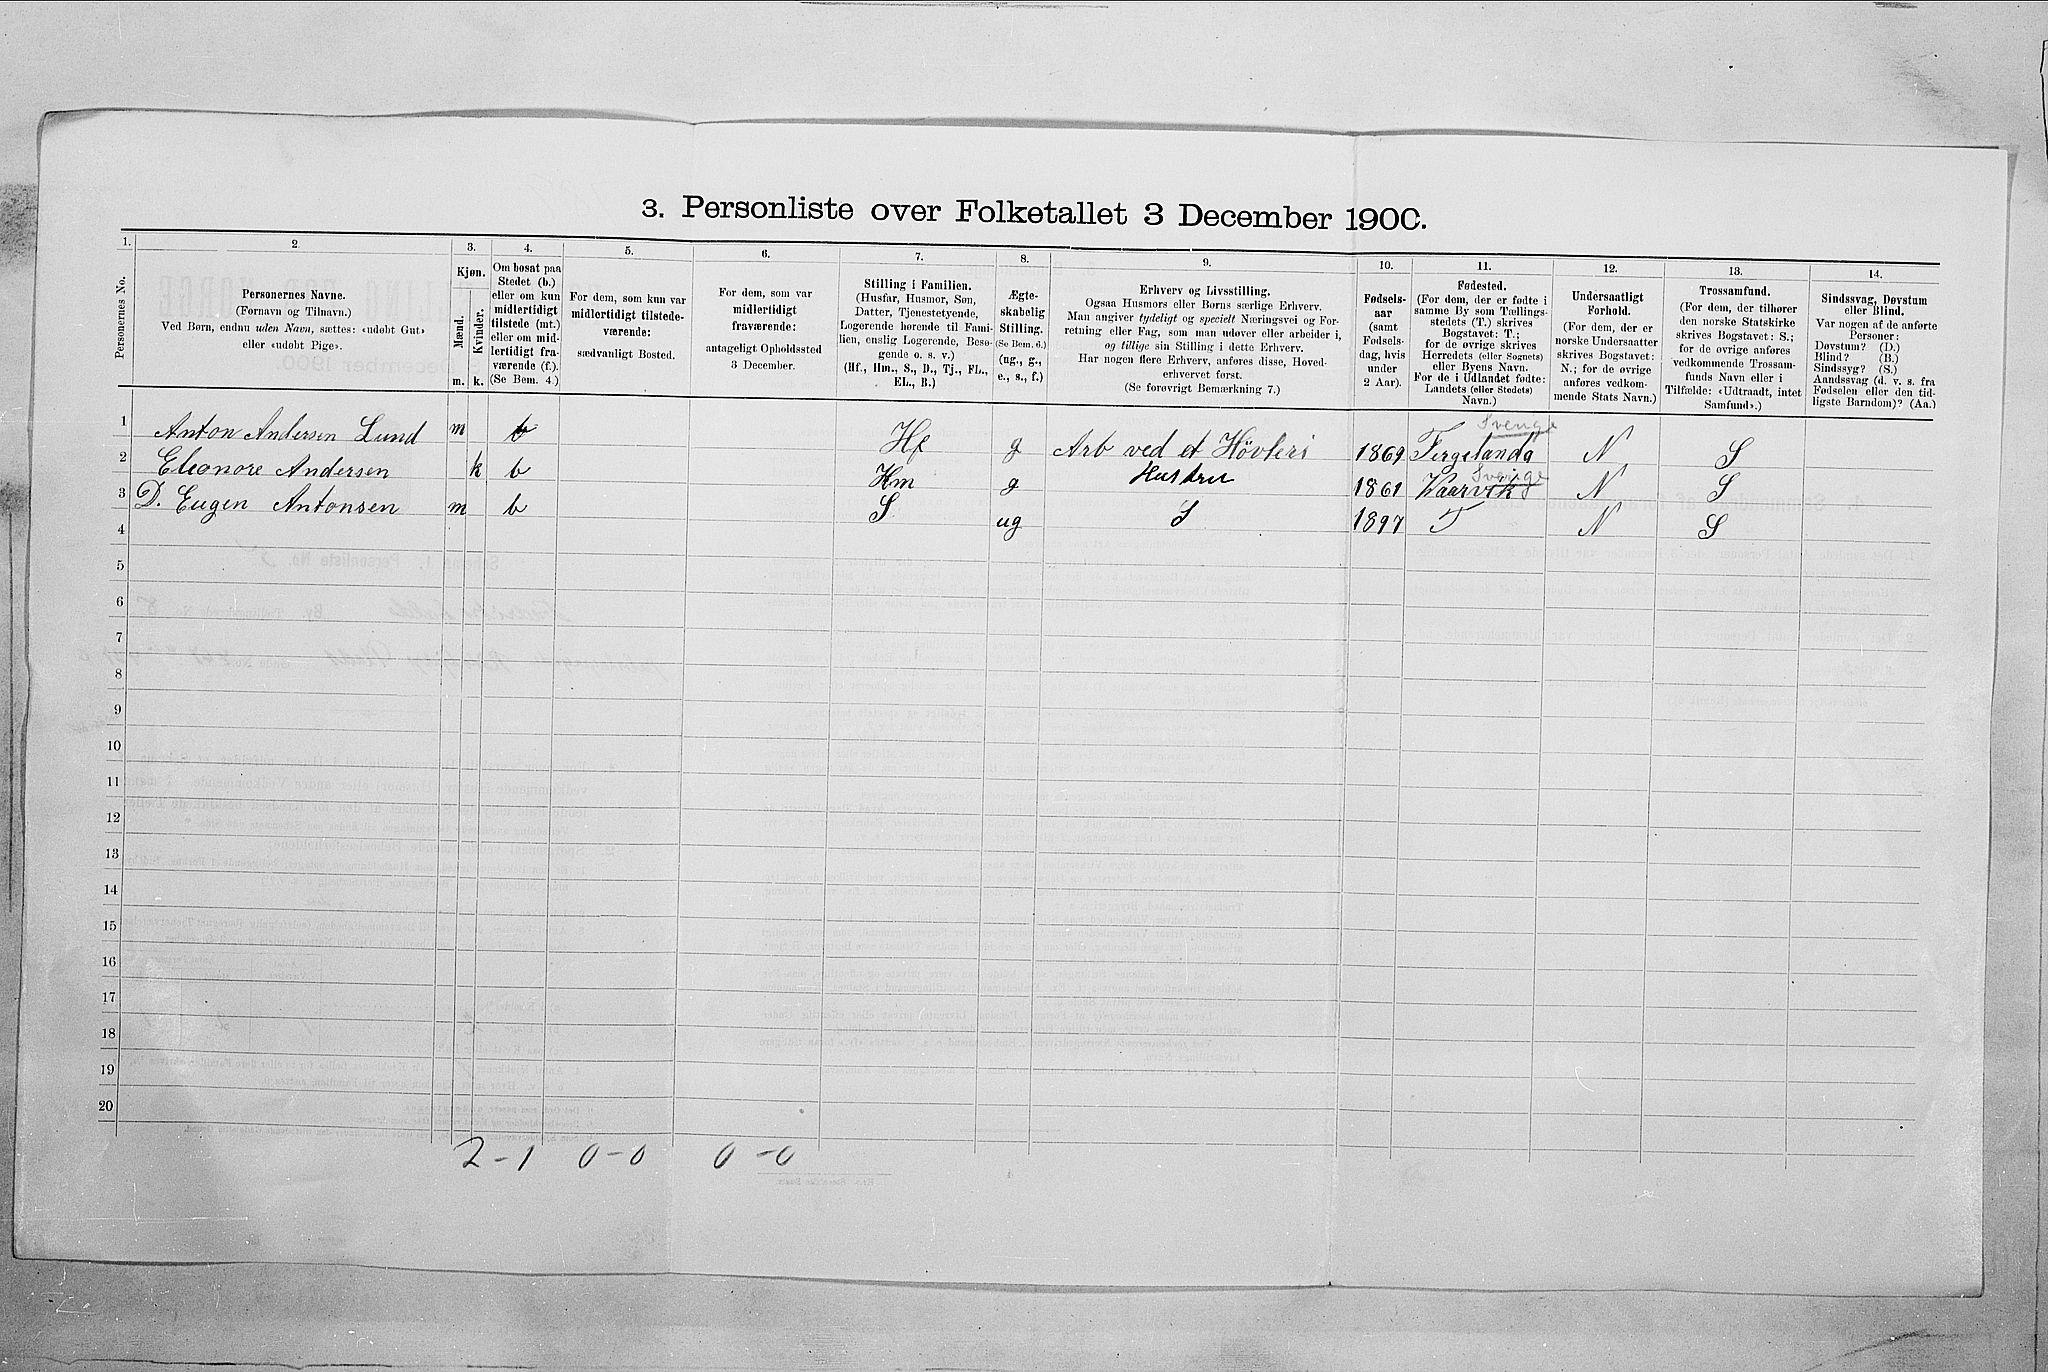 3. Personliste over Folketallet 3 December 1900.
1.
2.
3.
4.
5.
6.
7.
8.
9.
10.
11.
12.
13.
14.
Personernes No.
Personernes Navne.
(Fornavn og Tilnavn.)
Ved Børn, endnu uden Navn, sættes: «udøbt Gut»
eller «udøbt Pige».
Kjøn.
Mænd.
Kvinder.
m.
k.
Om bosat paa
Stedet (b.)
eller om kun
midlertidigt
tilstede (mt.)
eller om mid-
lertidigt fra-
værende (f.).
(Se Bem. 4.)
For dem, som kun var
midlertidigt tilstede-
værende:
sædvanligt Bosted.
For dem, som var
midlertidigt
fraværende:
antageligt Opholdssted
3 December.
Stilling i Familien.
(Husfar, Husmor, Søn,
Datter, Tjenestetyende,
Logerende hørende til Fami-
lien, enslig Logerende, Besø-
gende o. s. v.)
(Hf., Hm., S., D., Tj., FL.,
EL., B.)
Ægte-
skabelig
Stilling.
(Se Bem. 6.)
(ug., g.,
e., s., f.)
Erhverv og Livsstilling.
Ogsaa Husmors eller Børns særlige Erhverv.
Man angiver tydeligt og specielt Næringsvei og For-
retning eller Fag, som man udøver eller arbeider i,
og tillige sin Stilling i dette Erhverv.
Har nogen flere Erhverv, anføres disse, Hoved-
erhvervet først.
(Se forøvrigt Bemærkning 7.)
Fødsels-
aar
(samt
Fødsels-
dag, hvis
under
2 Aar).
Fødested.
(For dem, der er fødte i
samme By som Tællings-
stedets (T.) skrives
Bogstavet: T.;
for de øvrige skrives
Herredets (eller Sognets)
eller Byens Navn.
For de i Udlandet fødte:
Landets (eller Stedets)
Navn.)
Undersaatligt
Forhold.
(For dem, der er
norske Undersaatter
skrives Bogstavet:
N.; for de øvrige
anføres vedkom-
mende Stats Navn.)
Trossamfund.
(For dem, der tilhører
den norske Statskirke
skrives Bogstavet: S.;
for de øvrige anføres
vedkommende Trossam-
funds Navn eller i
Tilfælde: «Udtraadt, intet
Samfund».)
Sindssvag, Døvstum
eller Blind.
Var nogen af de anførte
Personer:
Døvstum? (D.)
Blind? (B.)
Sindssyg? (S.)
Aandssvag (d. v. s. fra
Fødselen eller den tid-
ligste Barndom)? (Aa.)
Sverige
1 Anton Andersen Lund m b Hf g Arb ved et Høvleri 1869 Fergelanda N S
Sverige
2 Eleonore Andersen k b Hm g Hustru 1861 Kaarvik N S
3 D. Eugen Antonsen m b S ug S 1897 T N S
4
5
6
7
8
9
10
11
12
13
14
15
16
17
18
19
20
2-1 0-0 0-0